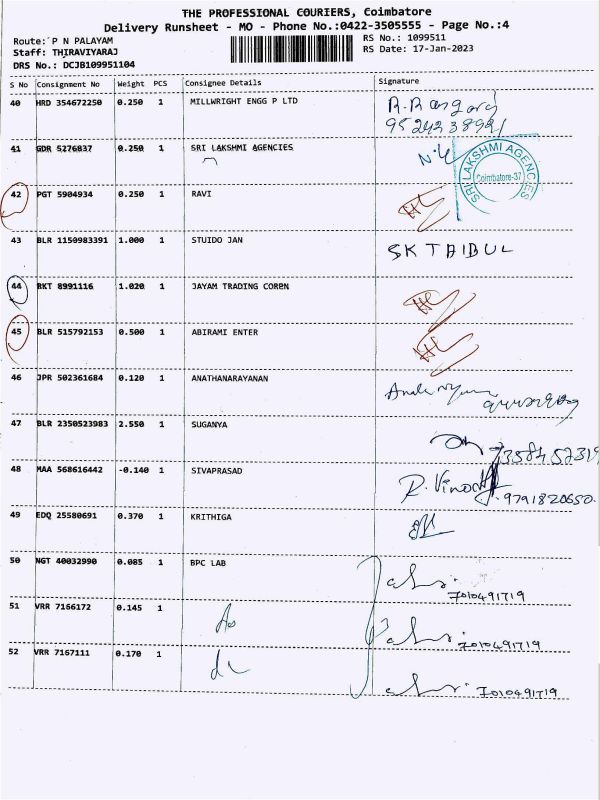 THE PROFESSIONAL COURIERS, Coimbatore
Delivery Runsheet - MO - Phone No.:0422-3505555 - Page No.:4
Route: P N PALAYAM
RS No.: 1099511
Staff: THIRAVIYARAJ
RS Date: 17-Jan-2023
DRS No.: DCJB109951104
S No Consignment No Weight PCS Consignee Details Signature
40 HRD 354672250 0.250 1 MILLWRIGHT ENGG P LTD R. Rangaraj
9524238921
41 GDR 5276837 0.250 1 SRI LAKSHMI AGENCIES
SRI LAKSHMI AGENCIES
Coimbatore-37
42 PGT 5904934 0.250 1 RAVI
43 BLR 1150983391 1.000 1 STUIDO JAN SK TAIBUL
44 RKT 8991116 1.020 1 JAYAM TRADING COREN
45 BLR 515792153 0.500 1 ABIRAMI ENTER
46 JPR 502361684 0.120 1 ANATHANARAYANAN
47 BLR 2350523983 2.550 1 SUGANYA
48 MAA 568616442 -0.140 1 SIVAPRASAD R. Vinoth
9791820650
49 EDQ 25580691 0.370 1 KRITHIGA
50 NGT 40032990 0.085 1 BPC LAB 7010491719
51 VRR 7166172 0.145 1 7010491719
52 VRR 7167111 0.170 1 7010491719